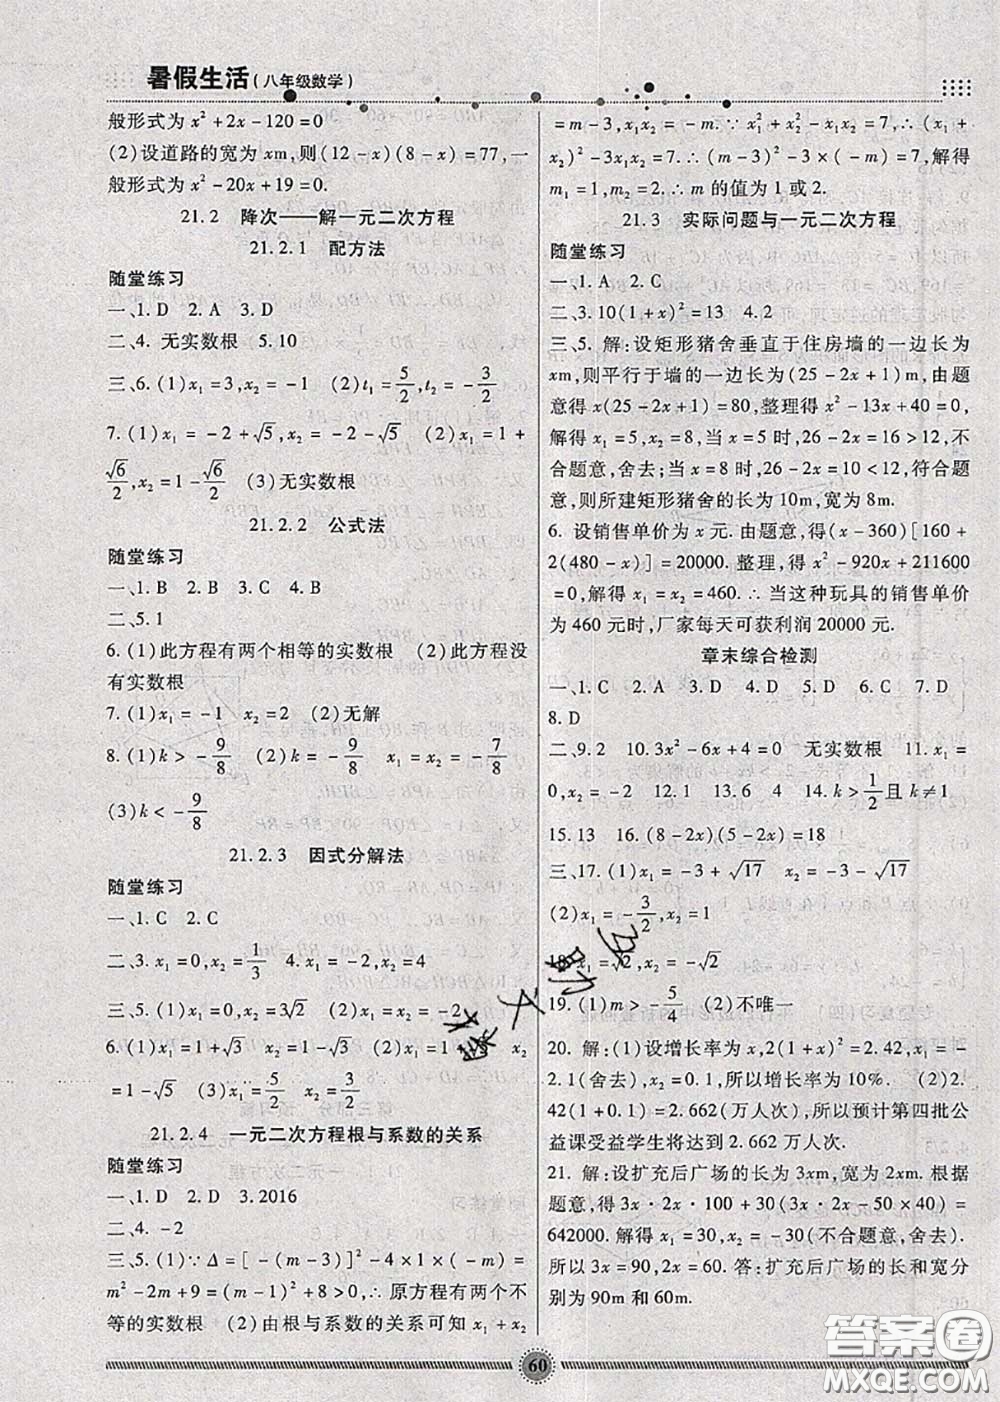 暑假生活(八年级数学)
般形式为 x²+2x-120=0
(2)设道路的宽为 xm,则(12-x)(8-x)=77,一
般形式为 x²-20x+19=0.
21.2 降次——解一元二次方程
21.2.1 配方法
随堂练习
一、1. D 2. A 3. D
二、4. 无实数根 5. 10
三、6. (1)x₁=3,x₂=-1 (2)t₁=5/2,t₂=-3/2
7. (1)x₁=-2+√5,x₂=-2-√5 (2)x₁=1+
√6/2,x₂=1-√6/2 (3)无实数根
21.2.2 公式法
随堂练习
一、1. B 2. B 3. C 4. B
二、5. 1
6. (1)此方程有两个相等的实数根 (2)此方程没
有实数根
7. (1)x₁=-1 x₂=2 (2)无解
8. (1)k>-9/8 (2)k=-9/8 x₁=x₂=-7/8
(3)k<-9/8
21.2.3 因式分解法
随堂练习
一、1. C 2. C
二、3. x₁=0,x₂=1/3 4. x₁=0,x₂=4
三、5. (1)x₁=0,x₂=3√2 (2)x₁=0,x₂=-2
6. (1)x₁=1+√3 x₂=1-√3 (2)x₁=1 x₂
=1-√5 (3)x₁=5/2 x₂=3/2
21.2.4 一元二次方程根与系数的关系
随堂练习
一、1. D 2. D 3. 2016
二、4. -2
三、5. (1)∵Δ=[-(m-3)]²-4×1×(-m)=
m²-2m+9=(m-1)²+8>0,∴原方程有两个不
等的实数根 (2)由根与系数的关系可知 x₁+x₂
=m-3,x₁x₂=-m.∵x₁²+x₂²-x₁x₂=7,∴(x₁+
x₂)²-3x₁x₂=7,∴(m-3)²-3×(-m)=7,解得
m₁=1,m₂=2.∴m 的值为 1 或 2.
21.3 实际问题与一元二次方程
随堂练习
一、1. A 2. C
二、3. 10(1+x)²=13 4. 2
三、5. 解:设矩形猪舍垂直于住房墙的一边长为
xm,则平行于墙的一边长为(25-2x+1)m,由题
意得 x(25-2x+1)=80,整理得 x²-13x+40=0,
解得 x₁=5,x₂=8,当 x=5 时,26-2x=16>12,不
合题意,舍去;当 x=8 时,26-2x=10<12,符合题
意,则所建矩形猪舍的长为 10m,宽为 8m.
6. 设销售单价为 x 元. 由题意,得(x-360)[160+
2(480-x)]=20000. 整理,得 x²-920x+211600
=0. 解得 x₁=x₂=460. ∴当这种玩具的销售单价
为 460 元时,厂家每天可获利润 20000 元.
章末综合检测
一、1. C 2. A 3. D 4. D 5. D 6. C 7. D
8. D
二、9. 2 10. 3x²-6x+4=0 无实数根 11. x₁=
0,x₂=2 12. 1 13. 6 4 14. k>1/2且 k≠1
15. 13 16. (8-2x)(5-2x)=18
三、17. (1)x₁=-3+√17 x₂=-3-√17
(2)x₁=-3/2,x₂=1
18. x₁=√2,x₂=-√2
19. (1)m>-5/4 (2)不唯一
20. 解:(1)设增长率为 x,2(1+x)²=2.42,x₁=-
2.1(舍去),x₂=0.1,所以增长率为 10%. (2)2.
42(1+0.1)=2.662(万人次),所以预计第四批公
益课受益学生将达到 2.662 万人次.
21. 解:设扩充后广场的长为 3xm,宽为 2xm. 根据
题意,得 3x·2x·100+30(3x·2x-50×40)=
642000. 解得 x₁=30,x₂=-30(不合题意,舍去).
所以 3x=90,2x=60. 答:扩充后广场的长和宽分
别为 90m 和 60m.
60
答案圈
MXQE.COM